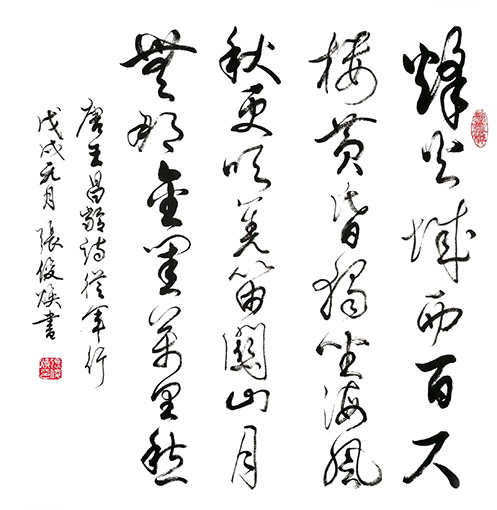 烽火城西百尺
樓黄昏獨坐海風
秋更吹羌笛關山月
無那金閨萬里愁
唐王昌齡詩從軍行
戊戌元月張俊煥書